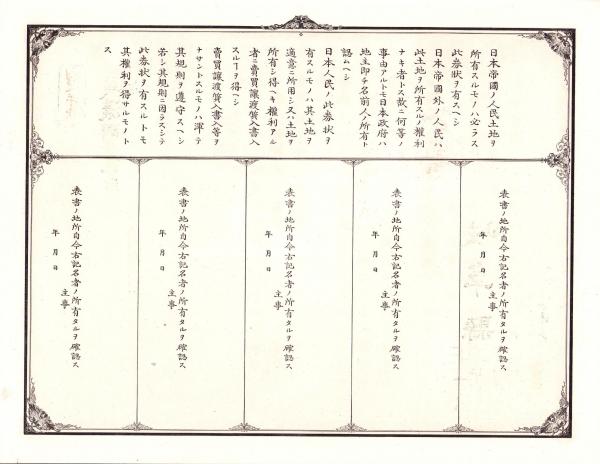 日本帝國ノ人民土地ヲ
所有スルモノハ必ラス
此券狀ヲ有スヘシ
日本帝國外ノ人民ハ
此土地ヲ所有スルノ權利
ナキ者トス故ニ何等ノ
事由アルトモ日本政府ハ
地主即チ名前人ノ所有ト
認ムヘシ
日本人民ノ此券狀ヲ
有スルモノハ其土地ヲ
適意ニ所用シ又ハ土地ヲ
所有シ得ヘキ權利アル
者ニ賣買讓渡質入書入
スルヿヲ得ヘシ
賣買讓渡質入書入等ヲ
ナサントスルモノハ渾テ
其規則ヲ遵守スヘシ
若シ其規則ニ因ラスシテ
此券狀ヲ有スルトモ
其權利ヲ得サルモノト
ス
表書ノ地所自今右記名者ノ所有タルヲ確認ス
主事
年月日
表書ノ地所自今右記名者ノ所有タルヲ確認ス
主事
年月日
表書ノ地所自今右記名者ノ所有タルヲ確認ス
主事
年月日
表書ノ地所自今右記名者ノ所有タルヲ確認ス
主事
年月日
表書ノ地所自今右記名者ノ所有タルヲ確認ス
主事
年月日